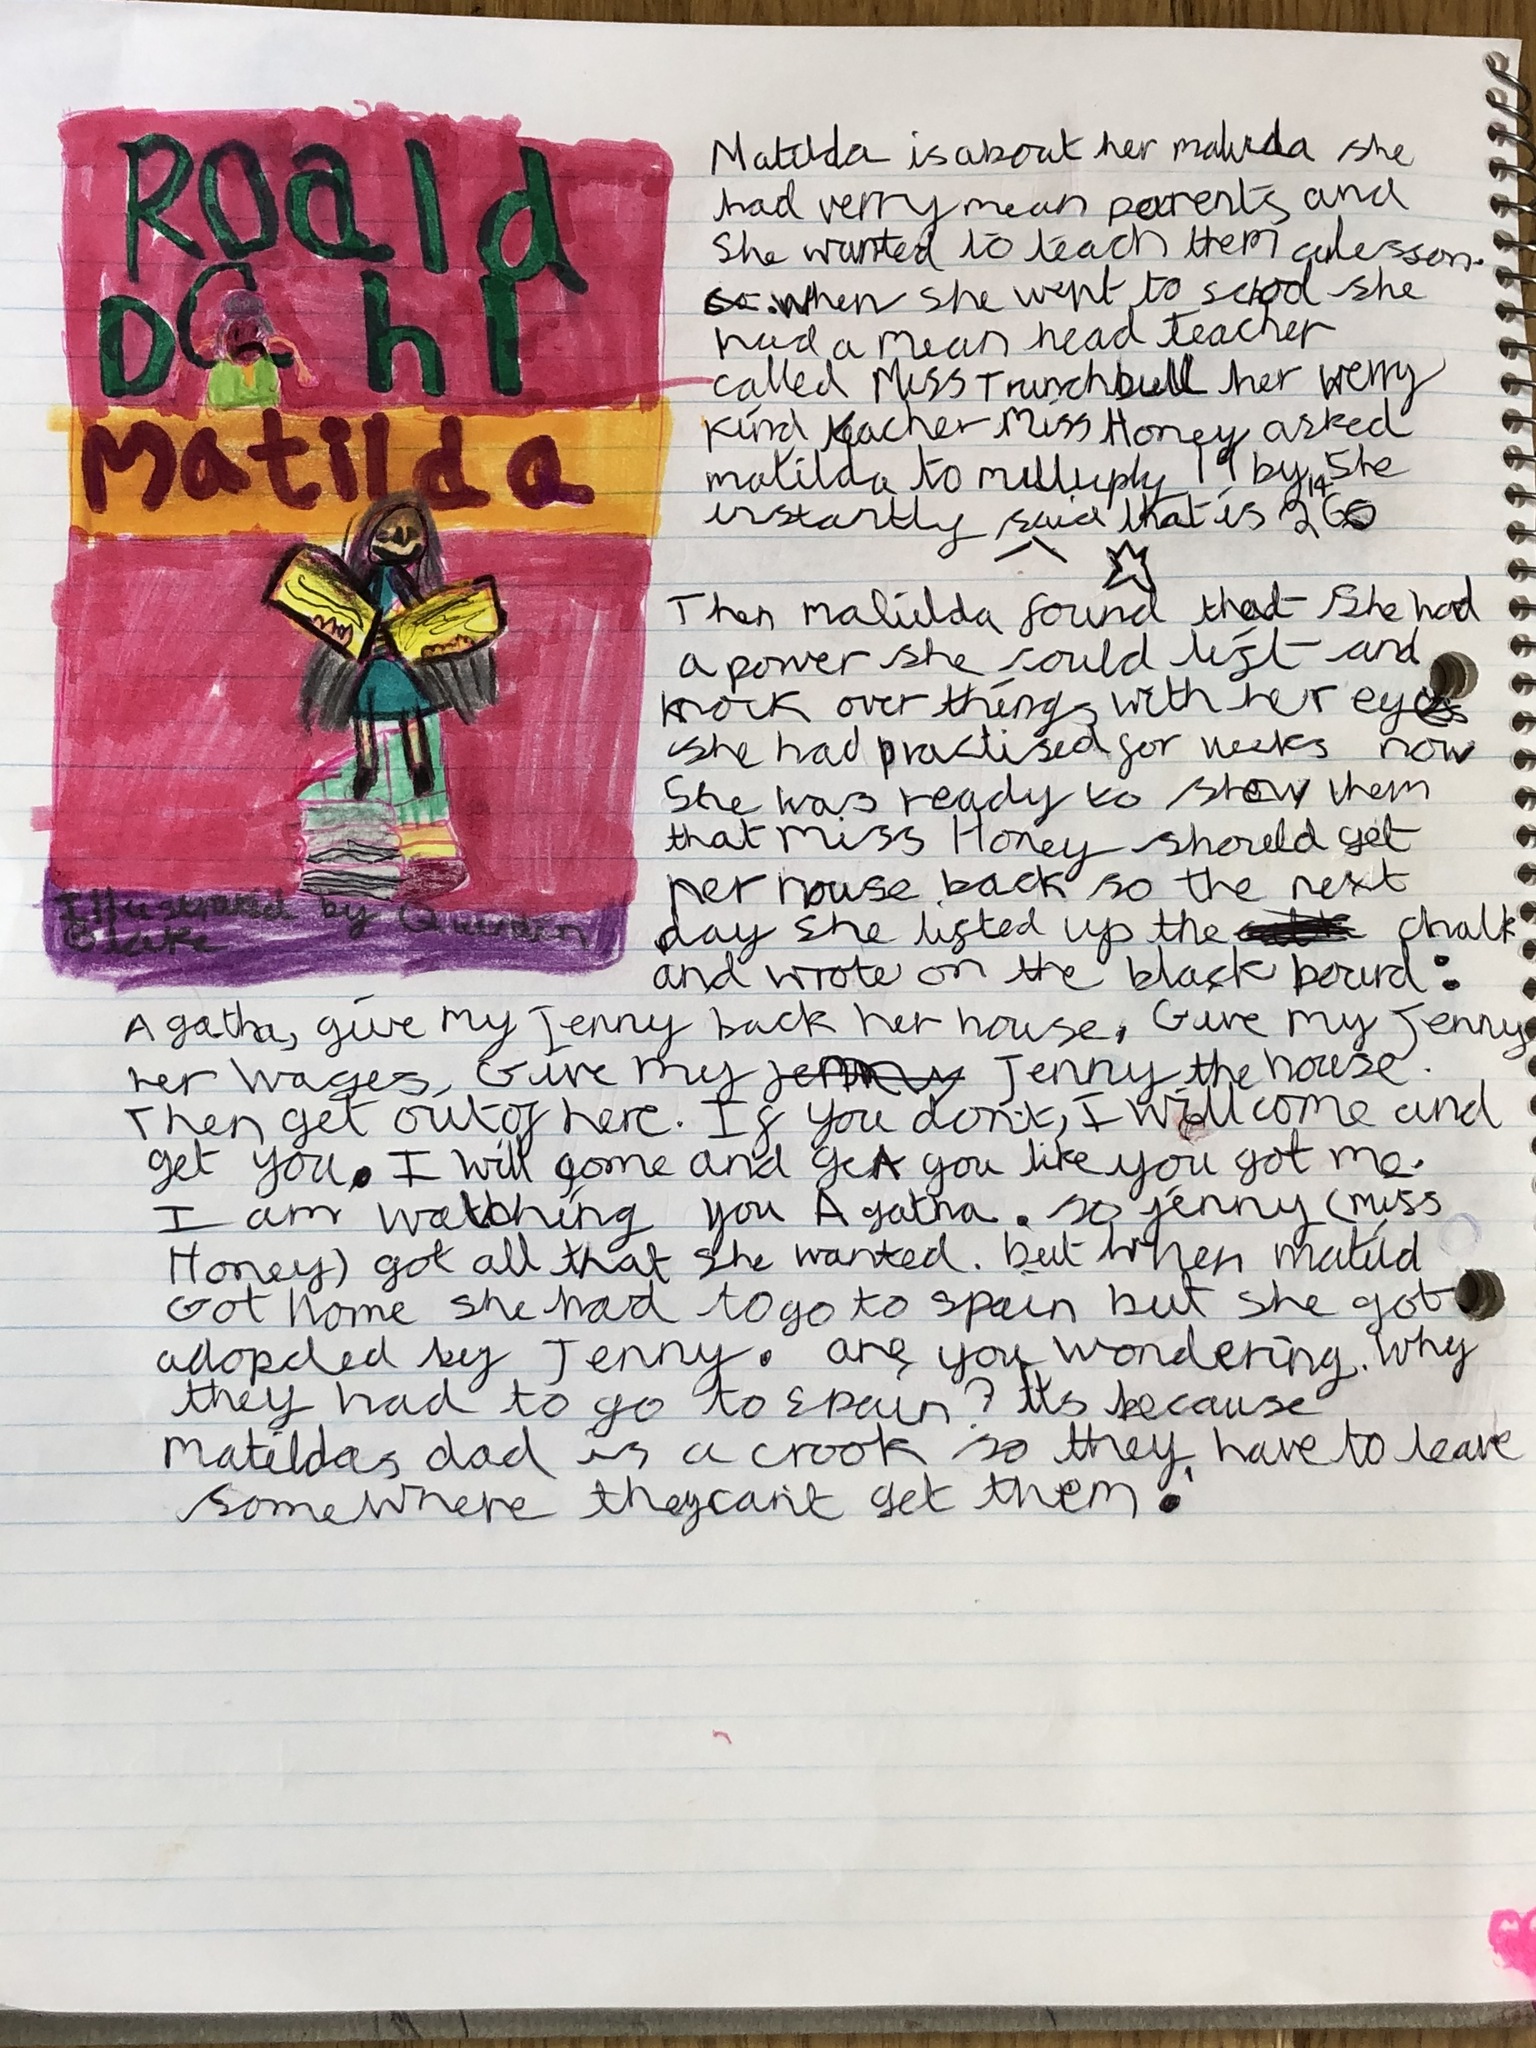 Roald
Dahl
Matilda
Illustrated by Quinten
Blake
Matilda is about her matilda she
had verry mean parents and
she wanted to teach them a lesson.
so. when she went to school she
had a mean head teacher
called Miss Trunchbull her verry
kind teacher Miss Honey asked
matilda to multiply 19 by 14 she
instantly said that is 266
Then matilda found that she had
a power she could lift and
knock over things with her eyes
she had practised for weeks now
She was ready to show them
that Miss Honey should get
her house back so the next
day she lifted up the chalk
and wrote on the black bourd:
Agatha, give my Jenny back her house, Give my Jenny
her wages, Give my jenny Jenny the house.
Then get out of here. If you don't, I will come and
get you. I will come and get you like you got me.
I am watching you Agatha. so jenny (miss
Honey) got all that she wanted. but when matild
Got home she had to go to spain but she got
adopded by Jenny. are you wondering why
they had to go to Spain? It's because
Matildas dad is a crook so they have to leave
somewhere they can't get them!